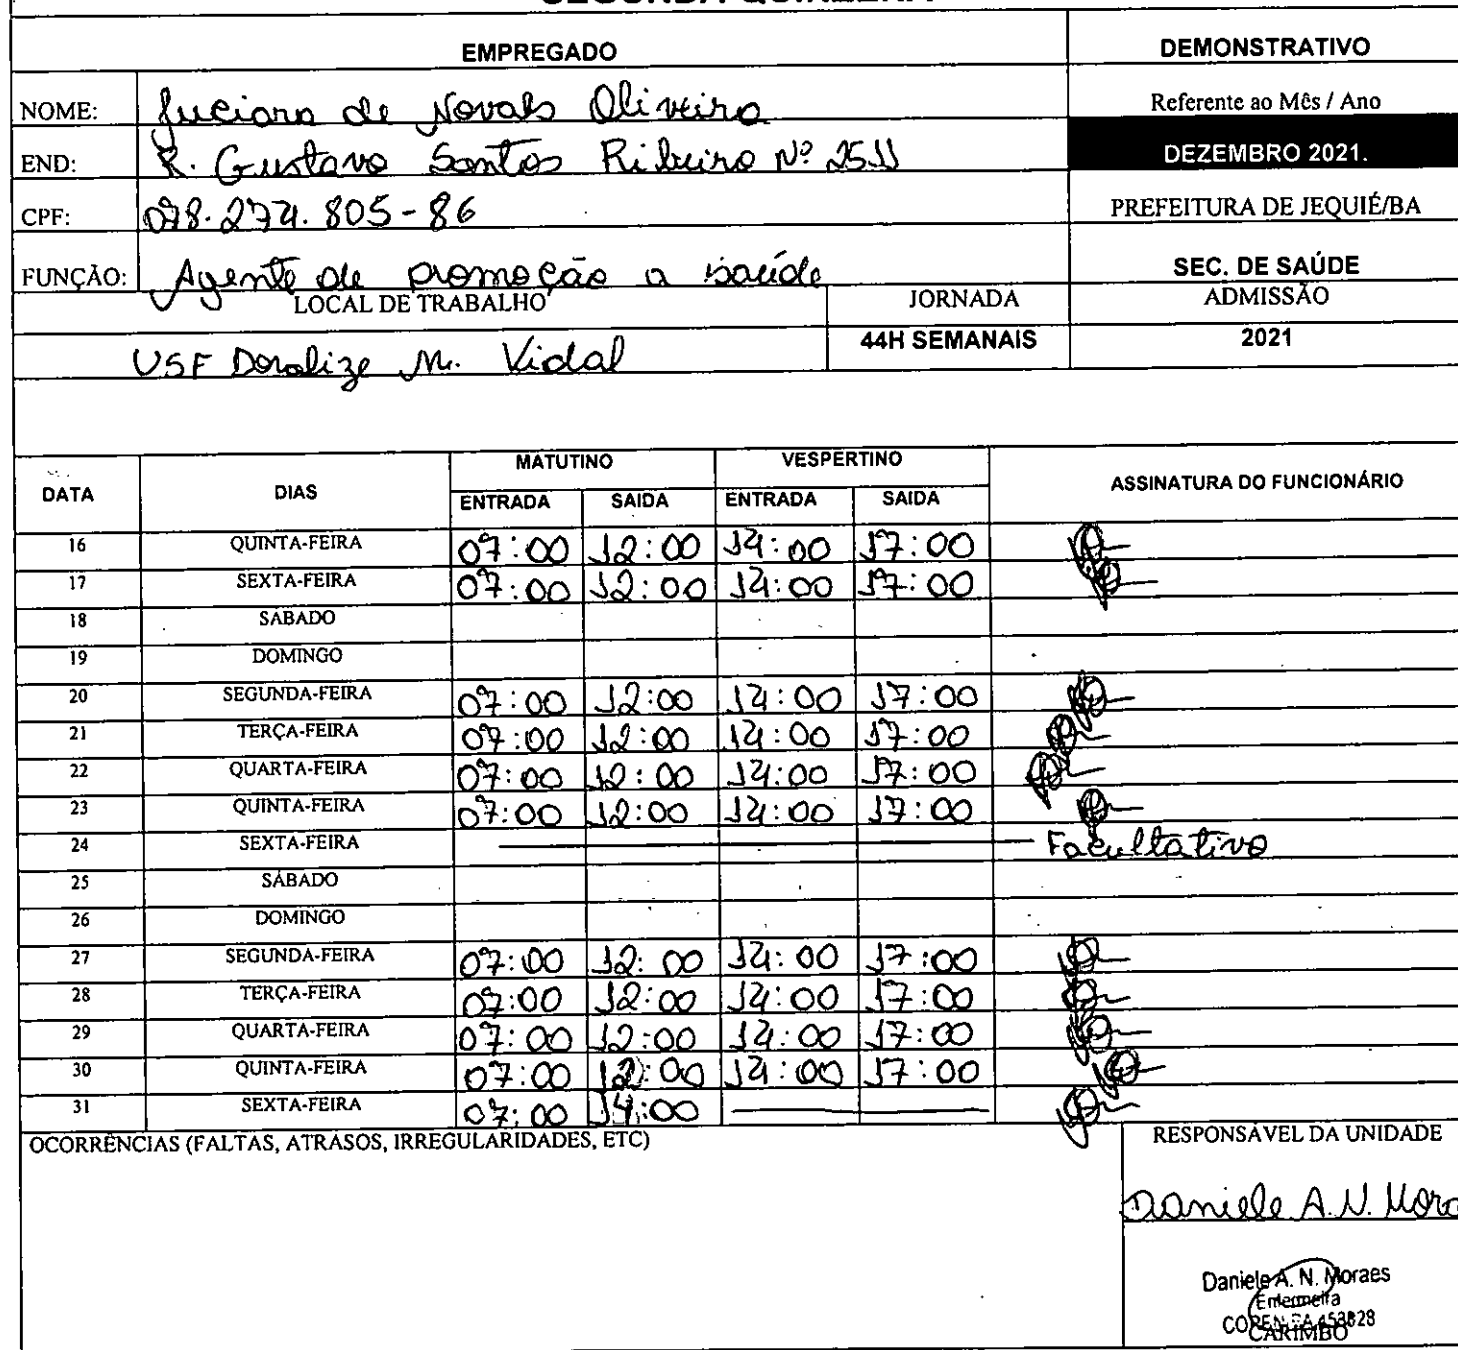 EMPREGADO DEMONSTRATIVO
NOME: Luciara de Novais Oliveira Referente ao Mês / Ano
END: R. Gustavo Santos Ribeiro Nº 2511 DEZEMBRO 2021.
CPF: 078.274.805-86 PREFEITURA DE JEQUIÉ/BA
FUNÇÃO: Agente de promoção a saúde SEC. DE SAÚDE
LOCAL DE TRABALHO JORNADA ADMISSÃO
USF Doralize M. Vidal 44H SEMANAIS 2021
DATA DIAS MATUTINO VESPERTINO ASSINATURA DO FUNCIONÁRIO
ENTRADA SAIDA ENTRADA SAIDA
16 QUINTA-FEIRA 07:00 12:00 14:00 17:00
17 SEXTA-FEIRA 07:00 12:00 14:00 17:00
18 SÁBADO
19 DOMINGO
20 SEGUNDA-FEIRA 07:00 12:00 14:00 17:00
21 TERÇA-FEIRA 07:00 12:00 14:00 17:00
22 QUARTA-FEIRA 07:00 12:00 14:00 17:00
23 QUINTA-FEIRA 07:00 12:00 14:00 17:00
24 SEXTA-FEIRA Facultativo
25 SÁBADO
26 DOMINGO
27 SEGUNDA-FEIRA 07:00 12:00 14:00 17:00
28 TERÇA-FEIRA 07:00 12:00 14:00 17:00
29 QUARTA-FEIRA 07:00 12:00 14:00 17:00
30 QUINTA-FEIRA 07:00 12:00 14:00 17:00
31 SEXTA-FEIRA 07:00 14:00
OCORRÊNCIAS (FALTAS, ATRASOS, IRREGULARIDADES, ETC) RESPONSÁVEL DA UNIDADE
Daniele A. N. Mora
Daniele A. N. Moraes
Enfermeira
COREN-BA 453828
CARIMBO